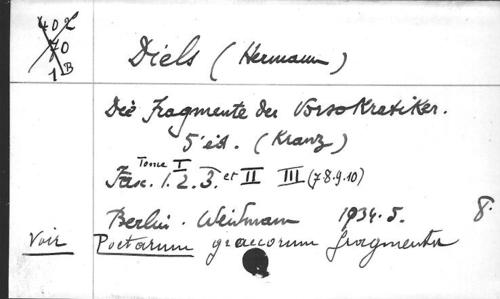 402
70
1 B
Diels (Hermann)
Die Fragmente der Vorsokratiker.
5e éd. (Kranz)
Tome I
Fasc. 1. 2. 3. et II III (7 8. 9. 10)
Berlin. Weidmann 1934. 5. 8°
Voir Poetarum graecorum fragmenta